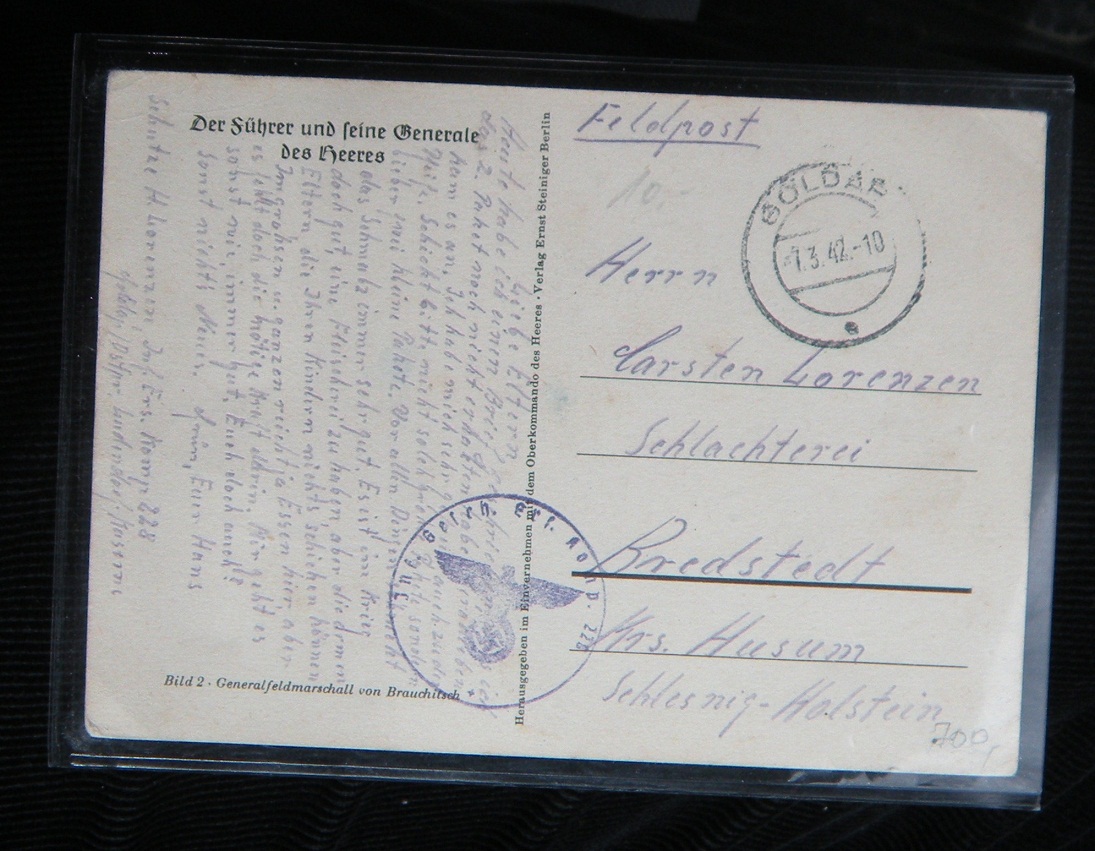 Der Führer und seine Generale
des Heeres
Liebe Eltern
Heute habe ich einen Brief
das 2. Paket noch nicht erhalten
kam es an. Ich habe mich sehr
Schickt bitte nicht solche
lieber zwei kleine Pakete. Vor allen Dingen
das Schmalz immer sehr gut. Es ist im Krieg
doch gut, eine Fleischerei zu haben, aber die armen
Eltern die Ihren Kindern nichts schicken können
Im grossen u. ganzen reicht ja Essen hier, aber
es fehlt doch die nötige Kraft darin. Mir geht es
sonst wie immer gut. Euch doch auch?
Sonst nichts Neues. Euer Hans
Schütze H. Lorenzen, Inf. Ers. Komp. 228
Goldap/Ostpr. Hindenburg-Kaserne
Bild 2 · Generalfeldmarschall von Brauchitsch
Herausgegeben im Einvernehmen mit dem Oberkommando des Heeres · Verlag Ernst Steiniger Berlin
Ers. Komp. 228
Feldpost
10.-
GOLDAP
-7.3.42.-10
a
Herrn
Carsten Lorenzen
Schlachterei
Bredstedt
Krs. Husum
Schleswig-Holstein
700,